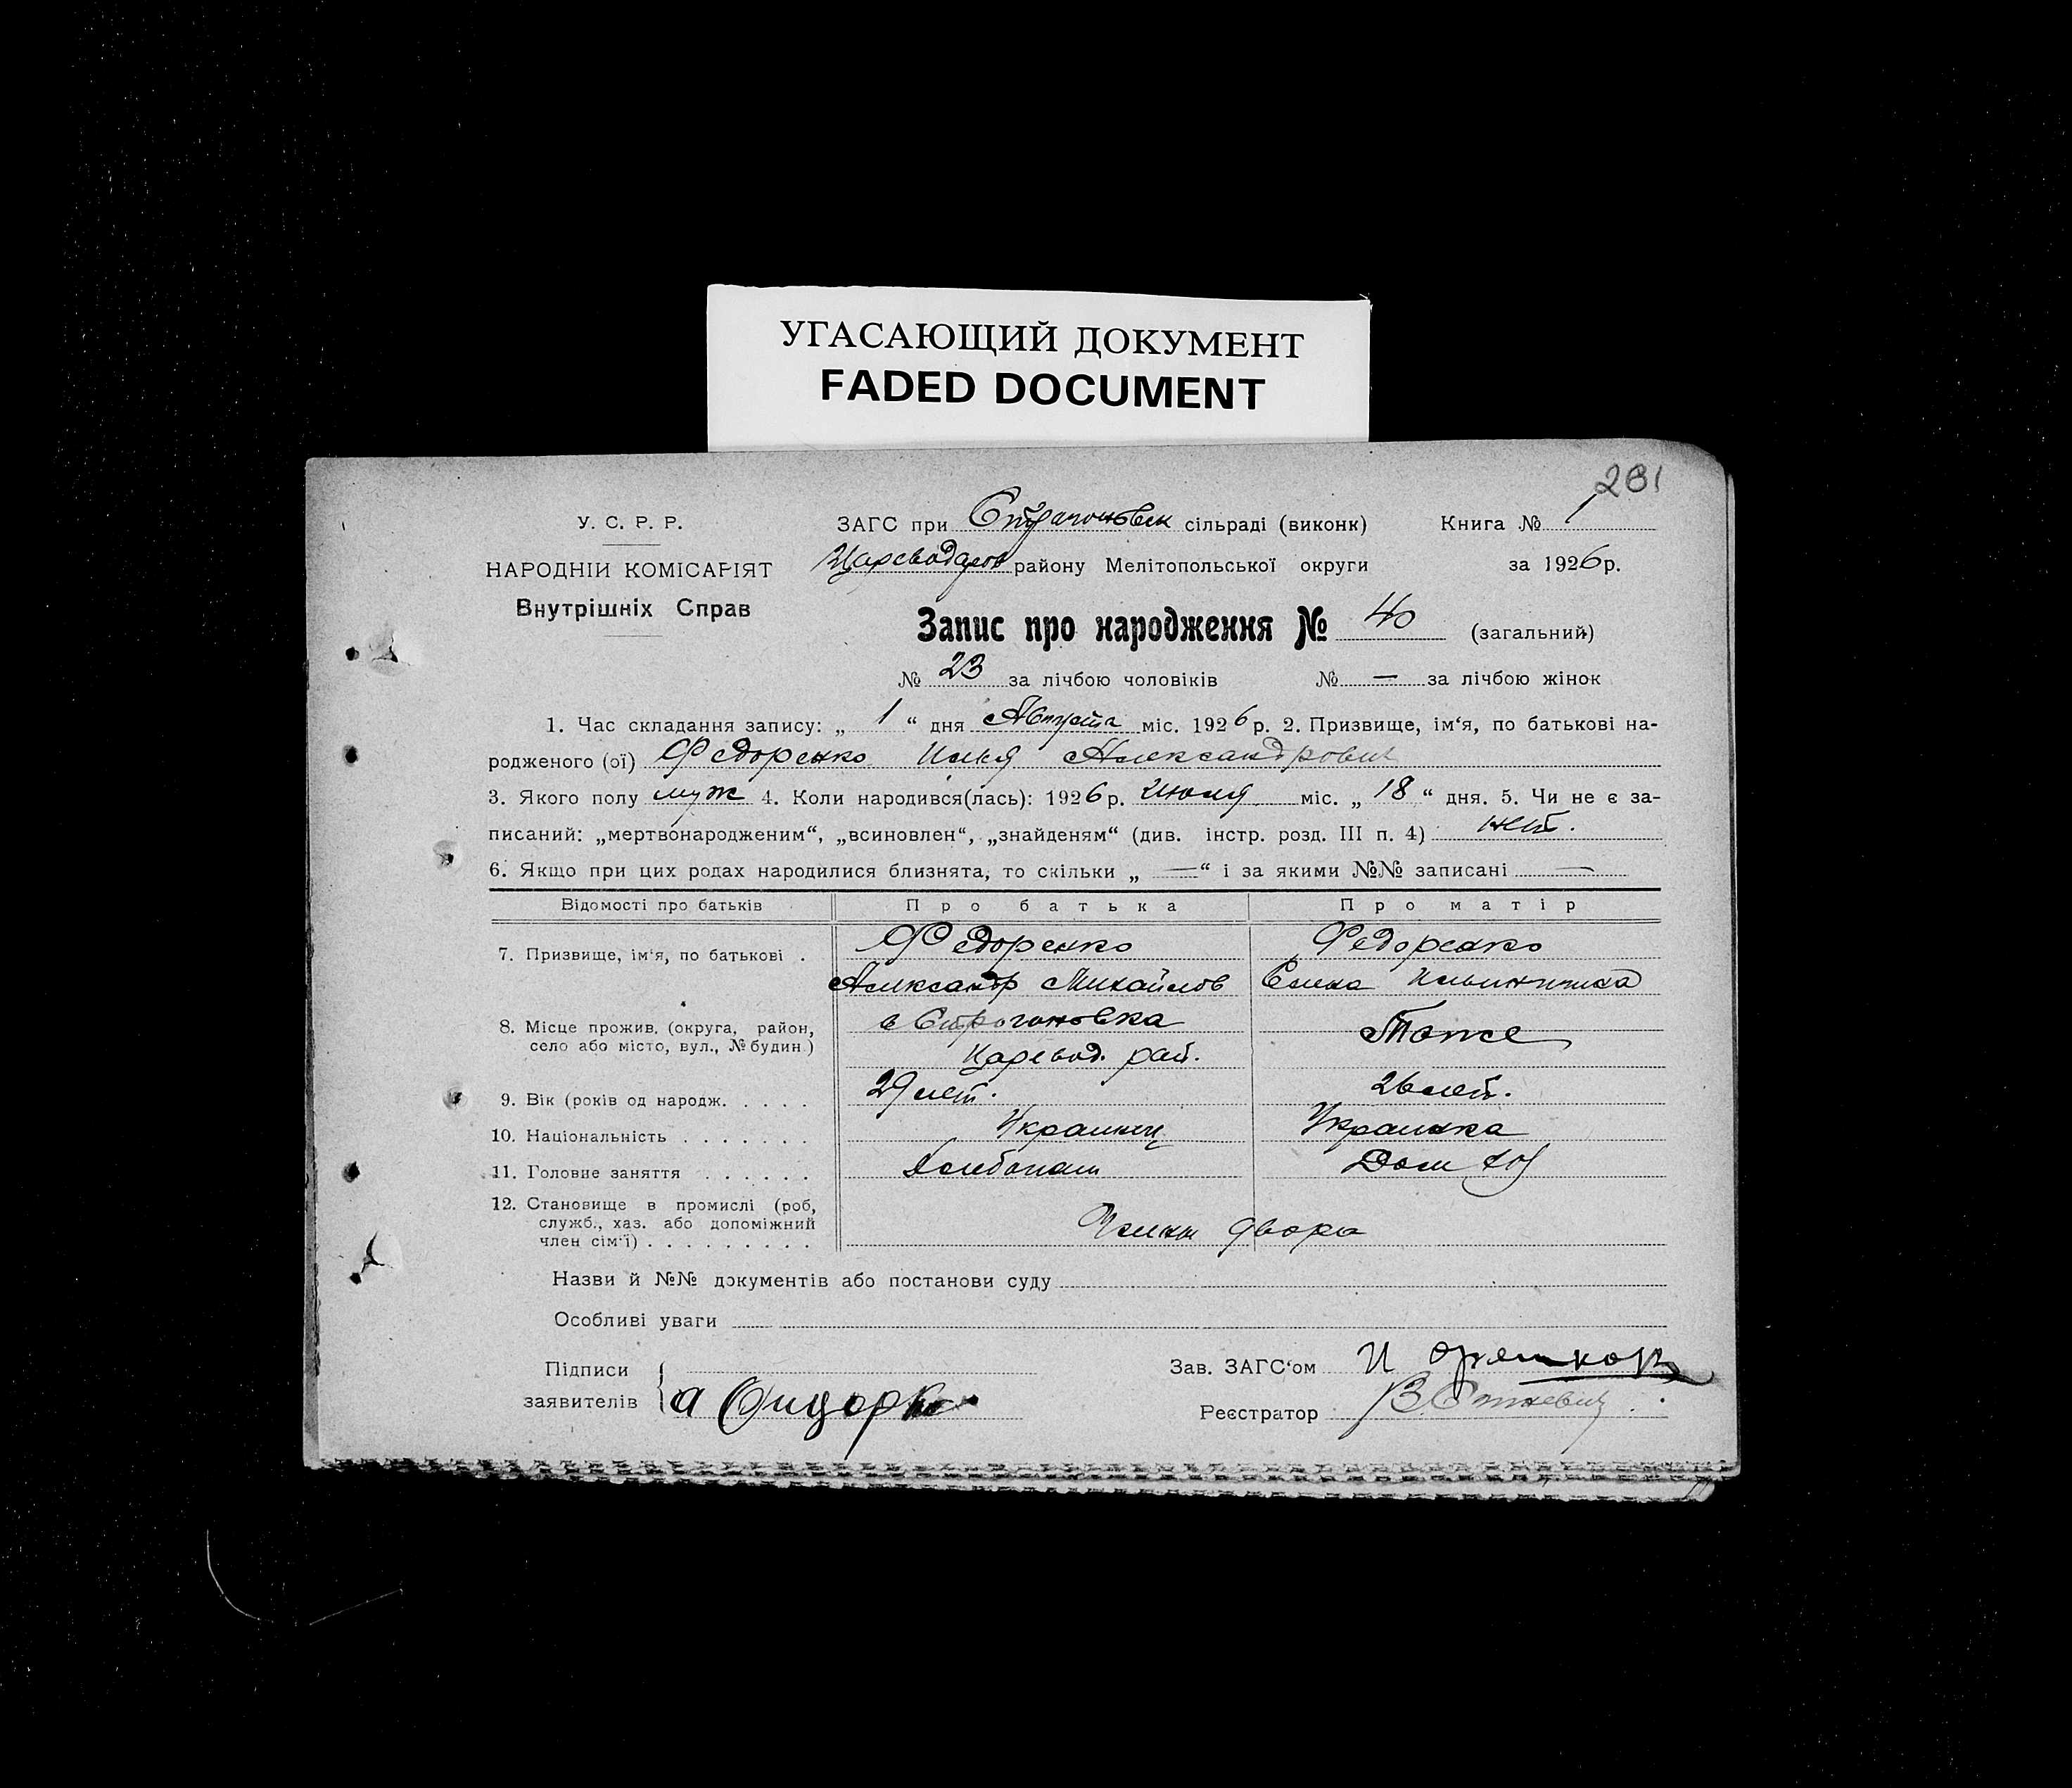 УГАСАЮЩИЙ ДОКУМЕНТ
FADED DOCUMENT
281
У. С. Р. Р.
НАРОДНІЙ КОМІСАРІЯТ
Внутрішніх Справ
ЗАГС при Строгоновск сільраді (виконк) Книга № 1
Цареводаров району Мелітопольської округи за 1926 р.
Запис про народження № 40 (загальний)
№ 23 за лічбою чоловіків № — за лічбою жінок
1. Час складання запису: „ 1 “ дня Августа міс. 1926 р. 2. Призвище, ім‘я, по батькові на-
родженого (ої) Федоренко Илья Александрович
3. Якого полу муж 4. Коли народився(лась): 1926 р. Июля міс. „ 18 “ дня. 5. Чи не є за-
писаний: „мертвонародженим“, „всиновлен“, „знайденям“ (див. інстр. розд. III п. 4) нет.
6. Якщо при цих родах народилися близнята, то скільки „ — “ і за якими №№ записані —
Відомості про батьків Про батька Про матір
7. Призвище, ім‘я, по батькові . Федоренко Федоренко
Александр Михайлов Елена Ильинишна
8. Місце прожив. (округа, район, село або місто, вул., № будин.) в Строгоновка Тоже
Царевод. рай.
9. Вік (років од народж. . . . . 29 лет. 26 лет.
10. Національність . . . . . . . Украинец Украинка
11. Головне заняття . . . . . . Хлебопаш Дом хоз
12. Становище в промислі (роб,
служб., хаз. або допоміжний
член сім‘ї) . . . . . . . . . Члены двора
Назви й №№ документів або постанови суду
Особливі уваги
Підписи
заявителів а
Зав. ЗАГС‘ом И
Реєстратор В.